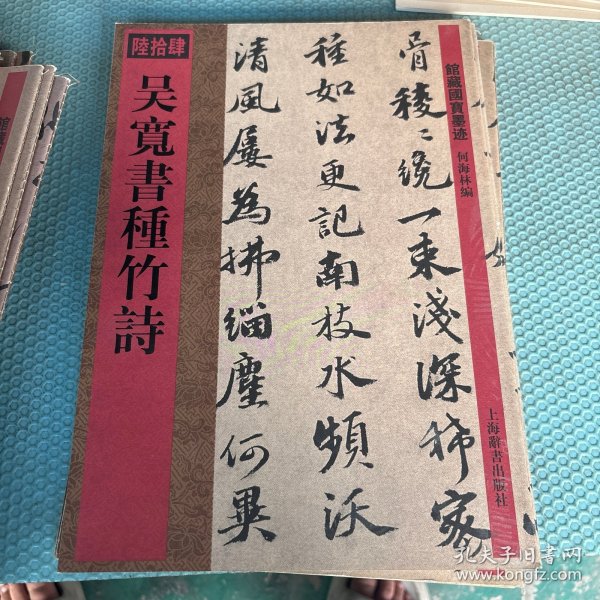 陸拾肆
吴寬書種竹詩
館藏國寶墨迹
何海林编
上海辭書出版社
骨稜〻一束淺深家
種如法更記南枝水頻沃
清風屢為拂緇塵何異
館藏
孔夫子旧书网
www.kongfz.com